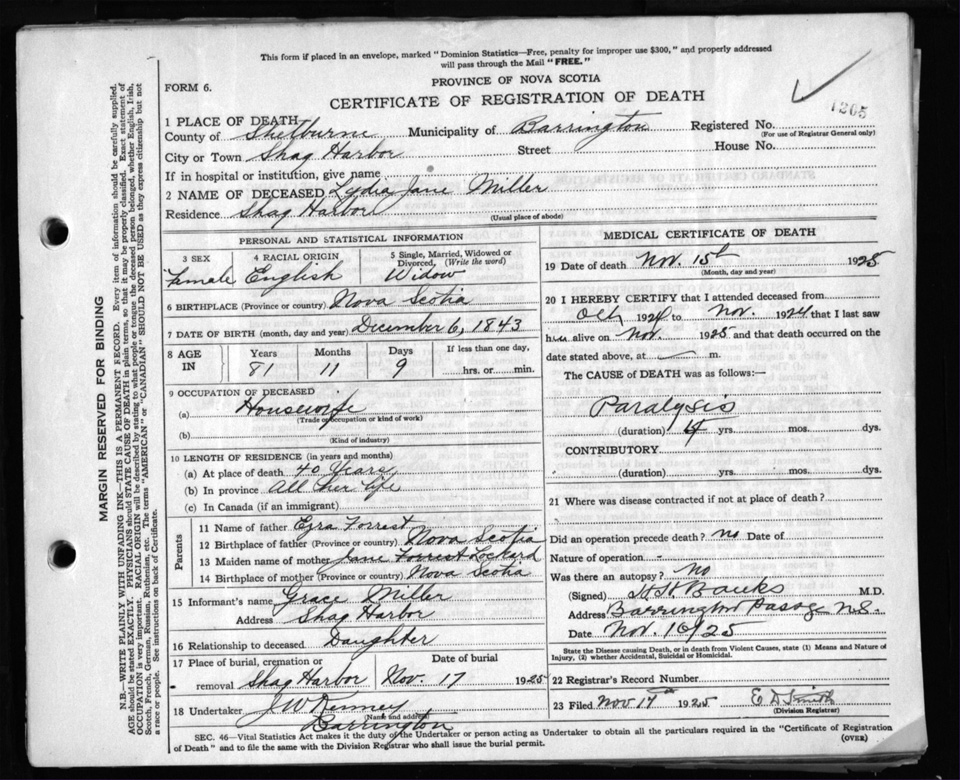 This form if placed in an envelope, marked "Dominion Statistics—Free, penalty for improper use $300," and properly addressed
will pass through the Mail "FREE."
FORM 6.
PROVINCE OF NOVA SCOTIA
CERTIFICATE OF REGISTRATION OF DEATH
1205
1 PLACE OF DEATH
County of Shelburne Municipality of Barrington Registered No.
(For use of Registrar General only)
City or Town Shag Harbor Street House No.
If in hospital or institution, give name
2 NAME OF DECEASED Lydia Jane Miller
Residence Shag Harbor
(Usual place of abode)
PERSONAL AND STATISTICAL INFORMATION
3 SEX 4 RACIAL ORIGIN 5 Single, Married, Widowed or Divorced, (Write the word)
Female English Widow
6 BIRTHPLACE (Province or country) Nova Scotia
7 DATE OF BIRTH (month, day and year) December 6, 1843
8 AGE IN Years Months Days If less than one day,
81 11 9 hrs. or min.
9 OCCUPATION OF DECEASED
(a) Housewife
(Trade or occupation or kind of work)
(b)
(Kind of industry)
10 LENGTH OF RESIDENCE (in years and months)
(a) At place of death 40 Years
(b) In province All her life
(c) In Canada (if an immigrant)
Parents
11 Name of father Ezra Forrest
12 Birthplace of father (Province or country) Nova Scotia
13 Maiden name of mother Jane Forrest Lockard
14 Birthplace of mother (Province or country) Nova Scotia
15 Informant's name Grace Miller
Address Shag Harbor
16 Relationship to deceased Daughter
17 Place of burial, cremation or Date of burial
removal Shag Harbor Nov. 17 1925
18 Undertaker J W Kenney
(Name and address)
Barrington
MEDICAL CERTIFICATE OF DEATH
19 Date of death Nov. 15th 1925
(Month, day and year)
20 I HEREBY CERTIFY that I attended deceased from
Oct 1924 to Nov. 1924 that I last saw
him alive on Nov. 1925 and that death occurred on the
date stated above, at m.
The CAUSE of DEATH was as follows:—
Paralysis
(duration) yrs. mos. dys.
CONTRIBUTORY
(duration) yrs. mos. dys.
21 Where was disease contracted if not at place of death?
Did an operation precede death? no Date of
Nature of operation
Was there an autopsy? No
(Signed) Banks M.D.
Address Barrington Passage N.S.
Date Nov. 16/25
State the Disease causing Death, or in death from Violent Causes, state (1) Means and Nature of
Injury, (2) whether Accidental, Suicidal or Homicidal.
22 Registrar's Record Number
23 Filed Nov 17th 1925 E D Smith
(Division Registrar)
SEC. 46—Vital Statistics Act makes it the duty of the Undertaker or person acting as Undertaker to obtain all the particulars required in the "Certificate of Registration
of Death" and to file the same with the Division Registrar who shall issue the burial permit. (OVER)
MARGIN RESERVED FOR BINDING
N.B.—WRITE PLAINLY WITH UNFADING INK—THIS IS A PERMANENT RECORD. Every item of information should be carefully supplied.
AGE should be stated EXACTLY. PHYSICIANS should STATE CAUSE OF DEATH in plain terms, so that it may be properly classified. Exact statement of
OCCUPATION is very important. RACIAL ORIGIN will be described by stating to what people or tongue the deceased person belonged, whether English, Irish,
Scotch, French, German, Russian, Ruthenian, etc. The terms "AMERICAN" or "CANADIAN" SHOULD NOT BE USED as they express citizenship but not
a race or people. See instructions on back of Certificate.